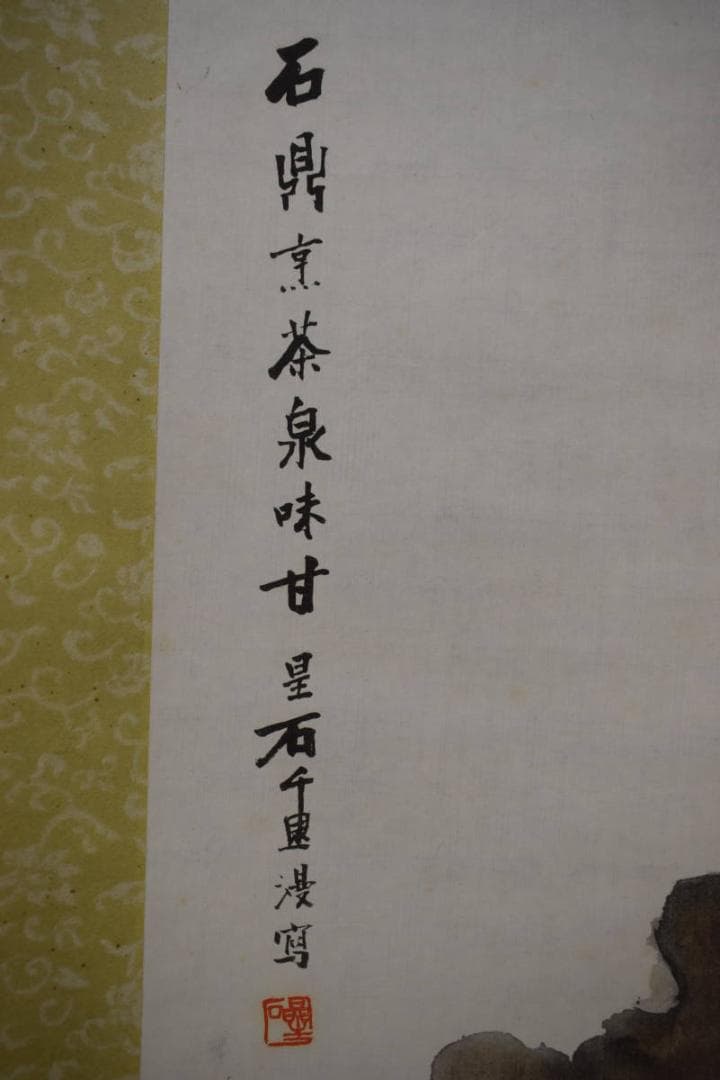 石鼎烹茶泉味甘 星石千里漫寫
星石